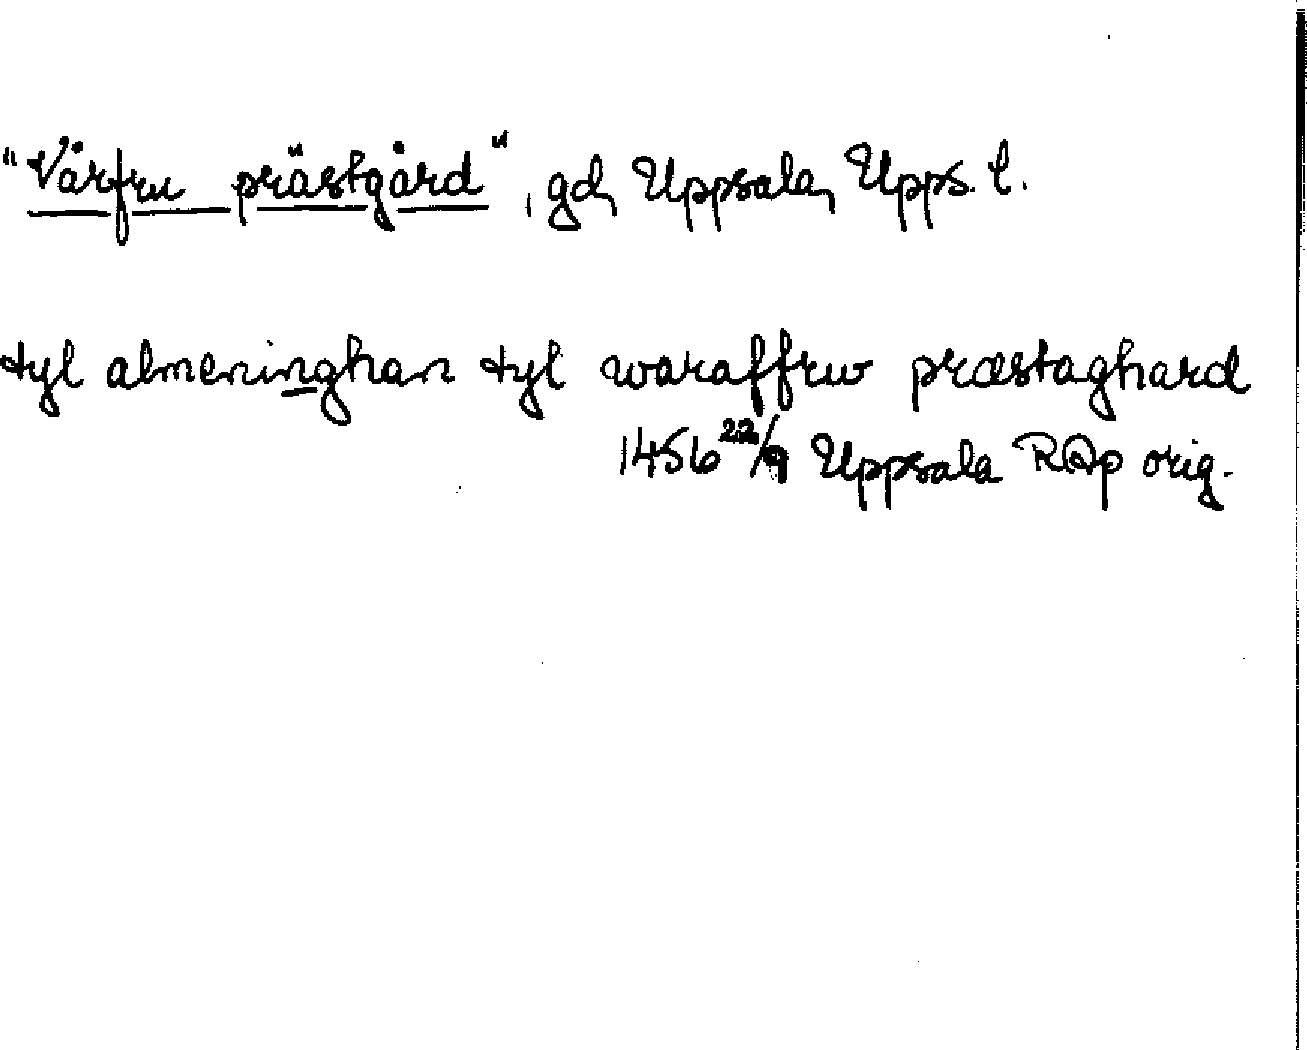 "Vårfru prästgård", gd, Uppsala, Upps. l.
tyl almeninghan tyl waraffrw præstaghard
1456 22/9 Uppsala RAp orig.